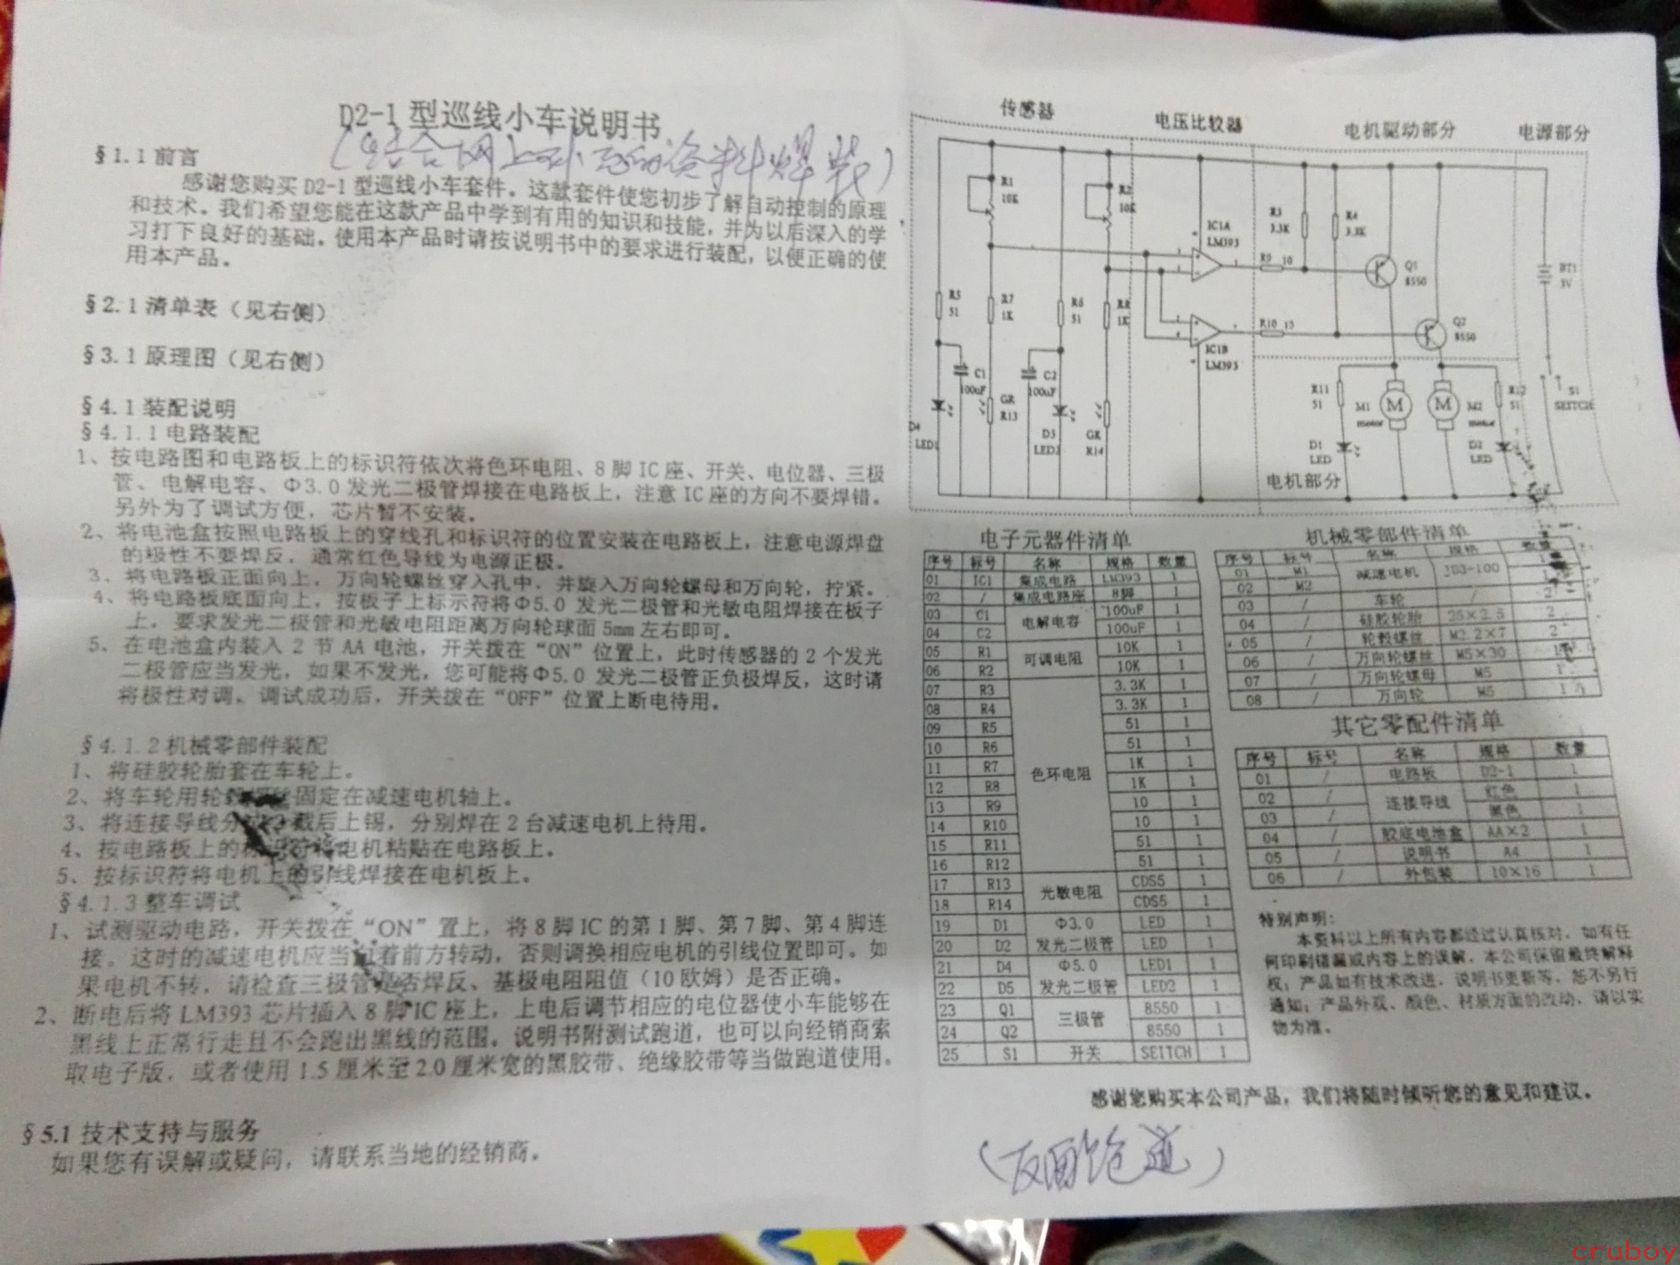 D2-1 型巡线小车说明书
§1.1 前言
感谢您购买 D2-1 型巡线小车套件。这款套件使您初步了解自动控制的原理
和技术。我们希望您能在这款产品中学到有用的知识和技能，并为以后深入的学
习打下良好的基础。使用本产品时请按说明书中的要求进行装配，以便正确的使
用本产品。
§2.1 清单表（见右侧）
§3.1 原理图（见右侧）
§4.1 装配说明
§4.1.1 电路装配
1、按电路图和电路板上的标识符依次将色环电阻、8 脚 IC 座、开关、电位器、三极
管、电解电容、Φ3.0 发光二极管焊接在电路板上，注意 IC 座的方向不要焊错。
另外为了调试方便，芯片暂不安装。
2、将电池盒按照电路板上的穿线孔和标识符的位置安装在电路板上，注意电源焊盘
的极性不要焊反，通常红色导线为电源正极。
3、将电路板正面向上，万向轮螺丝穿入孔中，并旋入万向轮螺母和万向轮，拧紧。
4、将电路板底面向上，按板子上标示符将Φ5.0 发光二极管和光敏电阻焊接在板子
上，要求发光二极管和光敏电阻距离万向轮球面 5mm 左右即可。
5、在电池盒内装入 2 节 AA 电池，开关拨在“ON”位置上，此时传感器的 2 个发光
二极管应当发光，如果不发光，您可能将Φ5.0 发光二极管正负极焊反，这时请
将极性对调。调试成功后，开关拨在“OFF”位置上断电待用。
§4.1.2 机械零部件装配
1、将硅胶轮胎套在车轮上。
2、将车轮用轮 固定在减速电机轴上。
3、将连接导线分 截后上锡，分别焊在 2 台减速电机上待用。
4、按电路板上的标识符将电机粘贴在电路板上。
5、按标识符将电机上的引线焊接在电机板上。
§4.1.3 整车调试
1、试测驱动电路，开关拨在“ON”置上，将 8 脚 IC 的第 1 脚、第 7 脚、第 4 脚连
接。这时的减速电机应当 着前方转动，否则调换相应电机的引线位置即可。如
果电机不转，请检查三极管是否焊反、基极电阻阻值（10 欧姆）是否正确。
2、断电后将 LM393 芯片插入 8 脚 IC 座上，上电后调节相应的电位器使小车能够在
黑线上正常行走且不会跑出黑线的范围。说明书附测试跑道，也可以向经销商索
取电子版，或者使用 1.5 厘米至 2.0 厘米宽的黑胶带、绝缘胶带等当做跑道使用。
§5.1 技术支持与服务
如果您有误解或疑问，请联系当地的经销商。
传感器 电压比较器 电机驱动部分 电源部分
R1 10K
R2 10K
IC1A LM393
R3 3.3K
R4 3.3K
R9 10
Q1 8550
BT1 3V
R5 51
R7 1K
R6 51
R8 1K
IC1B LM393
R10
Q2 8550
C1 100uF
C2 100uF
GR R13
GR R14
D4 LED1
R11 51
M1 motor
M
M
M2 motor
R12 51
S1 SEITCH
D1 LED
D2 LED
电机部分
电子元器件清单
序号 标号 名称 规格 数量
01 IC1 集成电路 LM393 1
02 / 集成电路座 8脚 1
03 C1 电解电容 100uF 1
04 C2 100uF 1
05 R1 可调电阻 10K 1
06 R2 10K 1
07 R3 色环电阻 3.3K 1
08 R4 3.3K 1
09 R5 51 1
10 R6 51 1
11 R7 1K 1
12 R8 1K 1
13 R9 10 1
14 R10 10 1
15 R11 51 1
16 R12 51 1
17 R13 光敏电阻 CDS5 1
18 R14 CDS5 1
19 D1 Φ3.0 LED 1
20 D2 发光二极管 LED 1
21 D4 Φ5.0 LED1 1
22 D5 发光二极管 LED2 1
23 Q1 三极管 8550 1
24 Q2 8550 1
25 S1 开关 SEITCH 1
机械零部件清单
序号 标号 名称 规格 数量
01 M1 减速电机 JD3-100
02 M2
03 / 车轮 / 2
04 / 硅胶轮胎 25×2.5 2
05 / 轮毂螺丝 M2.2×7 2
06 / 万向轮螺丝 M5×30
07 / 万向轮螺母 M5 1
08 / 万向轮 M5 1
其它零配件清单
序号 标号 名称 规格 数量
01 / 电路板 D2-1 1
02 / 连接导线 红色 1
03 / 黑色 1
04 / 胶底电池盒 AA×2 1
05 / 说明书 A4 1
06 / 外包装 10×16 1
特别声明：
本资料以上所有内容都经过认真核对，如有任
何印刷错漏或内容上的误解，本公司保留最终解释
权；产品如有技术改进，说明书更新等，恕不另行
通知；产品外观、颜色、材质方面的改动，请以实
物为准。
感谢您购买本公司产品，我们将随时倾听您的意见和建议。
（反面跑道）
cruboy